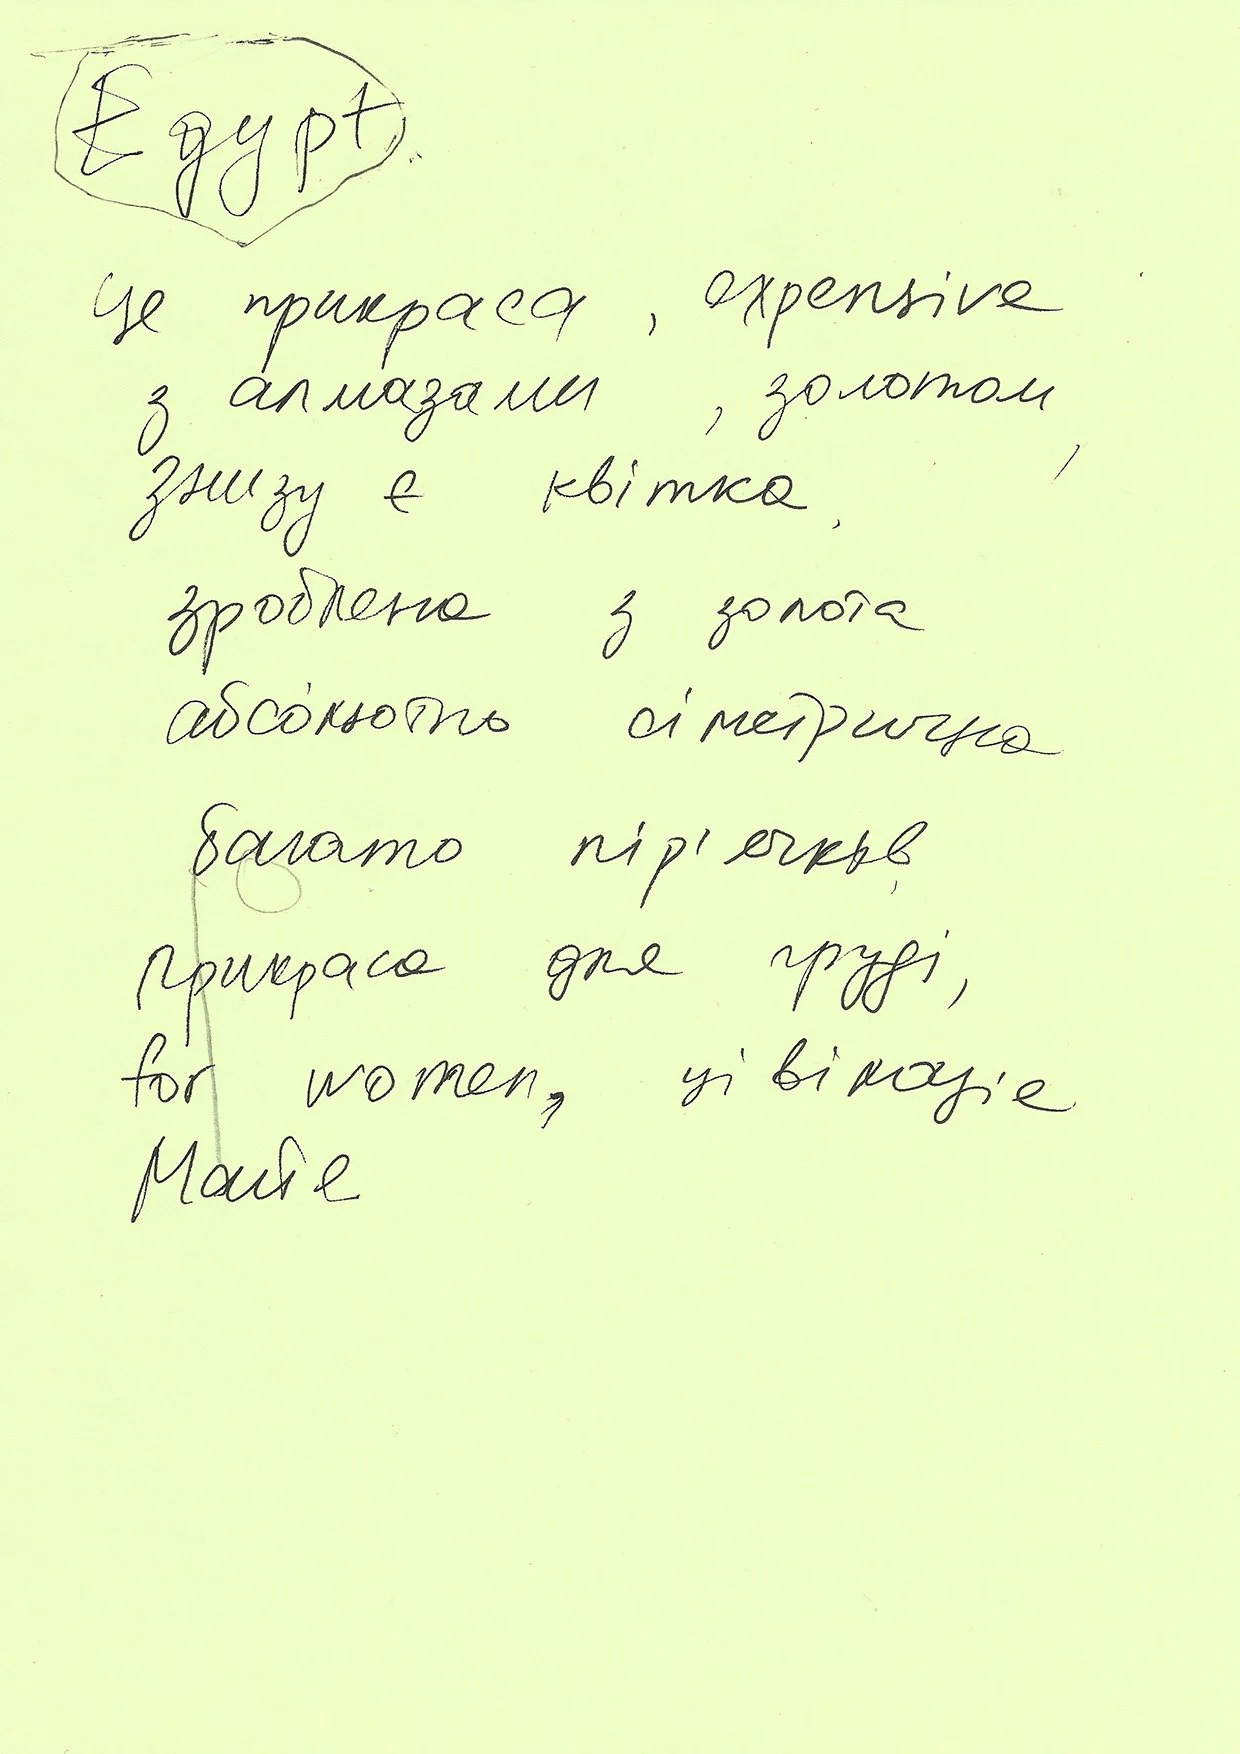 Egypt
це прикраса, expensive
з алмазами, золотом,
Знизу є квітка,
зроблена з золота
абсолютно сіметрична
багато пір'ячків,
Прикраса для груді,
for women, цівілазіє
Майе